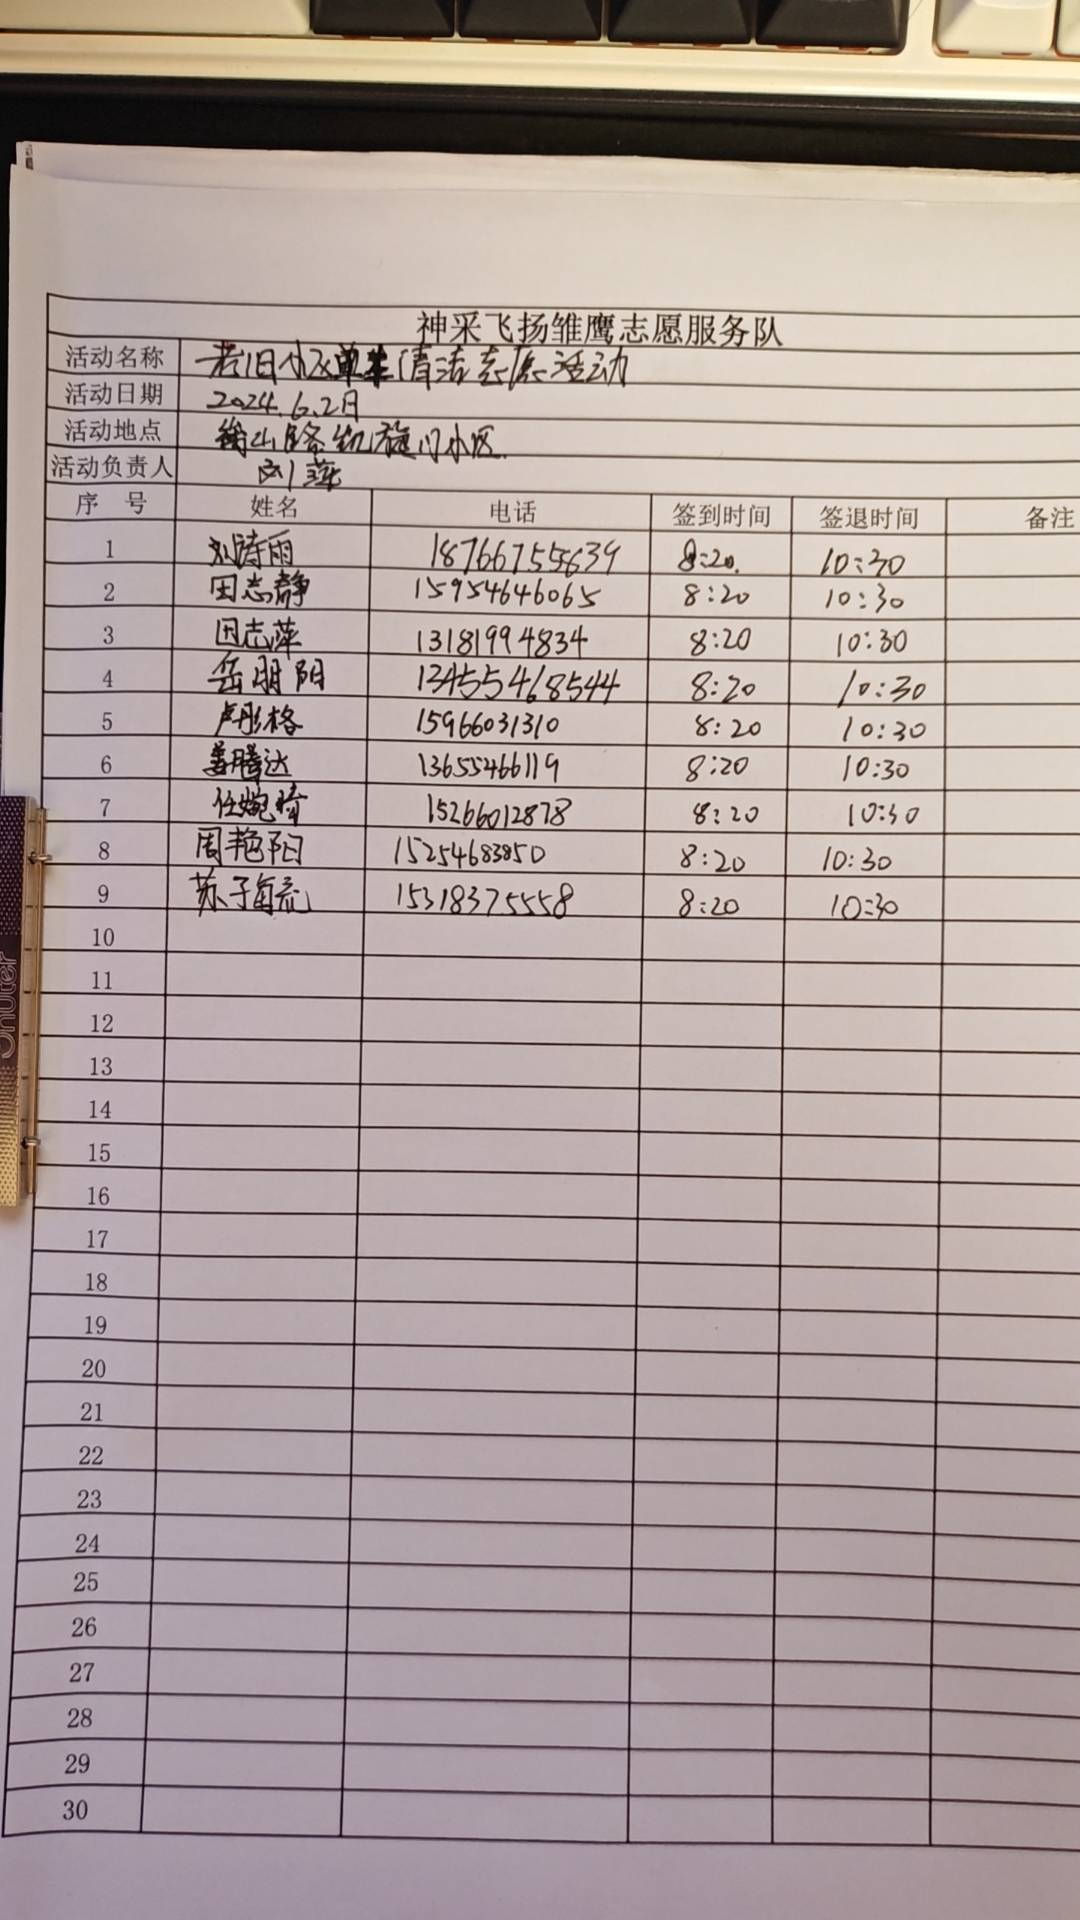 神采飞扬雏鹰志愿服务队
活动名称 老旧小区 清洁志愿活动
活动日期 2024.6.2日
活动地点 衡山路凯旋门小区
活动负责人 刘萍
序 号 姓名 电话 签到时间 签退时间 备注
1 刘诗雨 18766755639 8:20. 10:30
2 田志静 15954646065 8:20 10:30
3 田志萍 13181994834 8:20 10:30
4 岳明阳 13455468544 8:20 10:30
5 卢彤格 15966031310 8:20 10:30
6 姜腾达 13655466119 8:20 10:30
7 15266012878 8:20 10:30
8 周艳阳 15254683850 8:20 10:30
9 苏子 15318375558 8:20 10:30
10
11
12
13
14
15
16
17
18
19
20
21
22
23
24
25
26
27
28
29
30